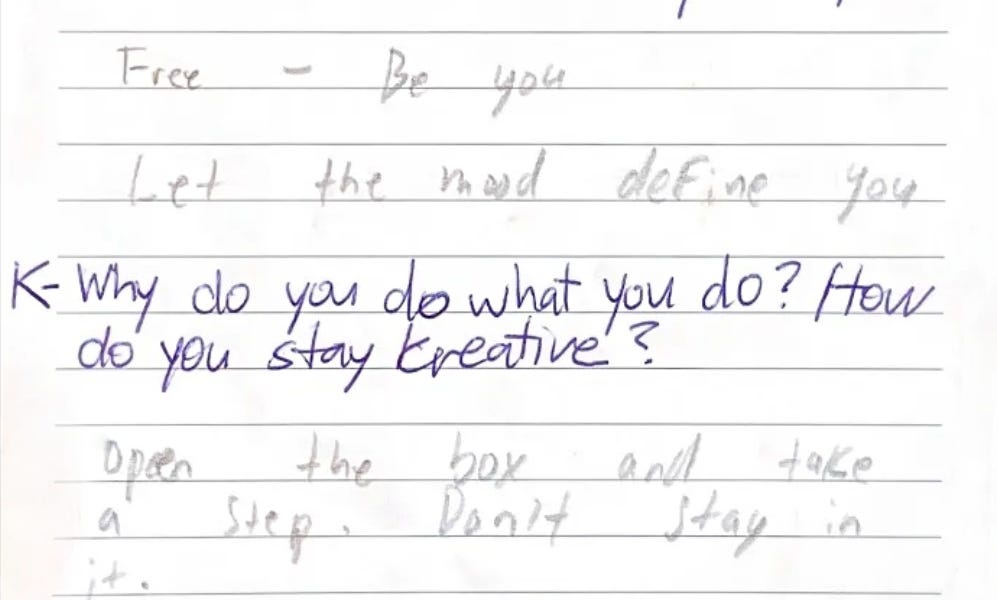 Free - Be you
Let the mood define you
K- Why do you do what you do? How
do you stay kreative?
Open the box and take
a step. Don't stay in
it.